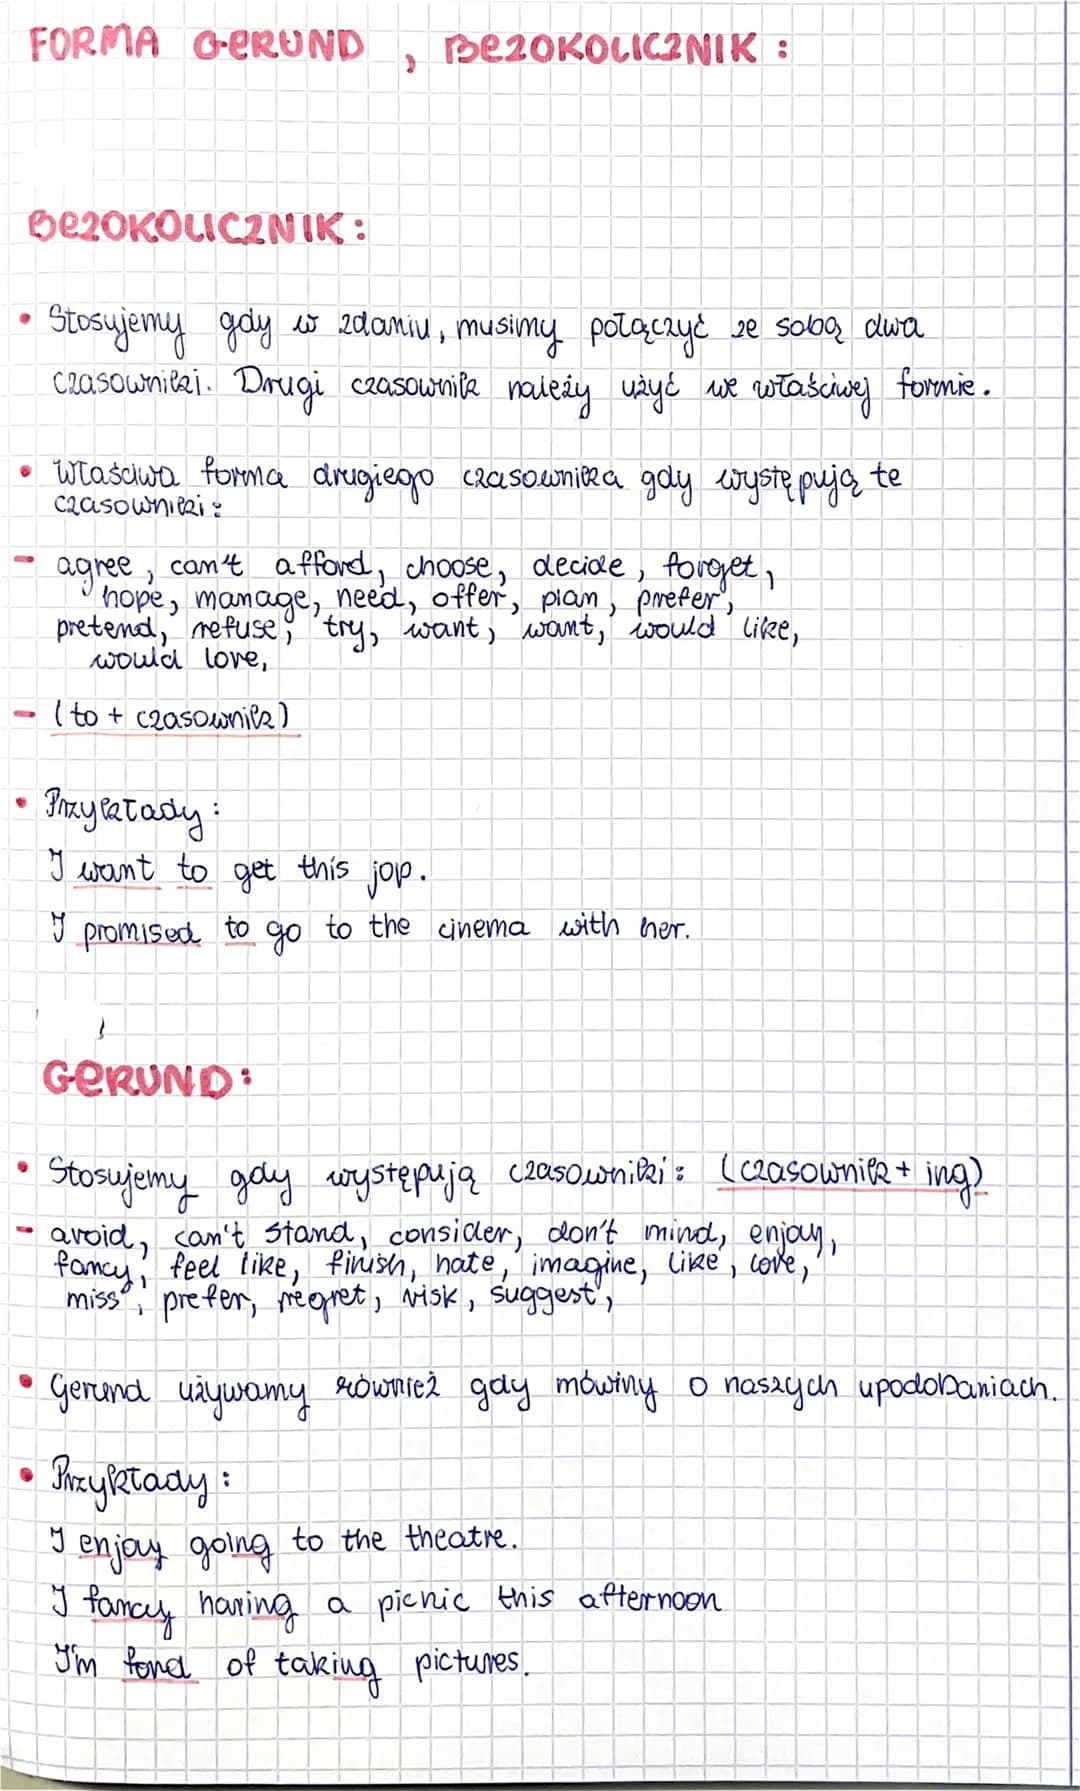 FORMA GERUND , BEZOKOLICZNIK :
BEZOKOLICZNIK :
• Stosujemy gdy w zdaniu, musimy połączyć ze sobą dwa
czasowniki. Drugi czasownik należy użyć we właściwej formie.
• Właściwa forma drugiego czasownika gdy występują te
czasowniki :
- agree, can't afford, choose, decide, forget,
hope, manage, need, offer, plan, prefer,
pretend, refuse, try, want, want, would like,
would love,
- (to + czasownik)
• Przykłady :
I want to get this jop.
I promised to go to the cinema with her.
GERUND :
• Stosujemy gdy występują czasowniki : (czasownik + ing)
- avoid, can't stand, consider, don't mind, enjoy,
fancy, feel like, finish, hate, imagine, like, love,
miss, prefer, regret, risk, suggest,
• Gerund używamy również gdy mówiny o naszych upodobaniach.
• Przykłady :
I enjoy going to the theatre.
I fancy having a picnic this afternoon
I'm fond of taking pictures.